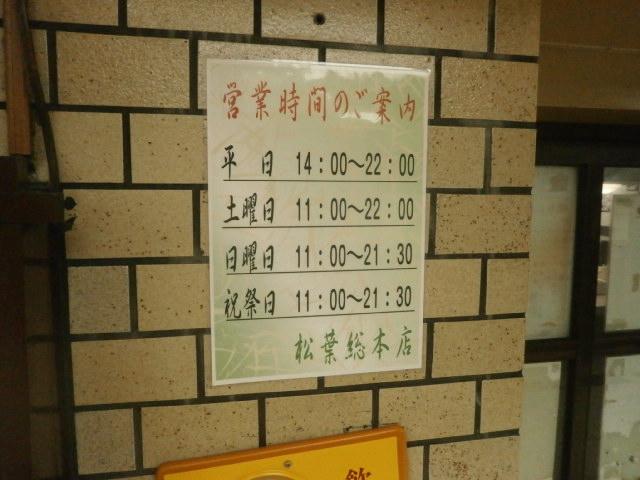 営業時間のご案内
平　日　14：00～22：00
土曜日　11：00～22：00
日曜日　11：00～21：30
祝祭日　11：00～21：30
松葉総本店